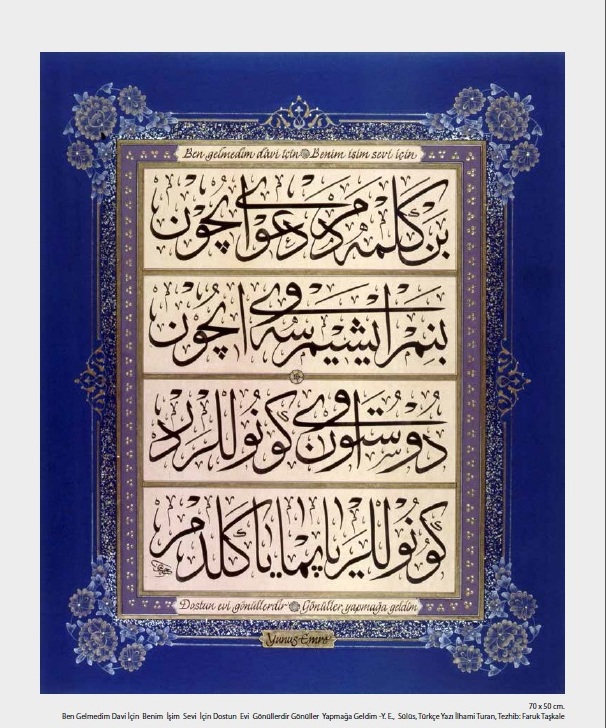 Ben gelmedim dâvi için Benim işim sevi için
بن كلمه مردم دعوا ايچون
بنم ايشيم سه وى ايچون
دوستون وى كونوللردر
كونوللر ياپمايا كلدم
Dostun evi gönüllerdir Gönüller yapmağa geldim
Yunus Emre
70 x 50 cm.
Ben Gelmedim Davi İçin Benim İşim Sevi İçin Dostun Evi Gönüllerdir Gönüller Yapmağa Geldim -Y. E., Sülüs, Türkçe Yazı İlhami Turan, Tezhib: Faruk Taşkale